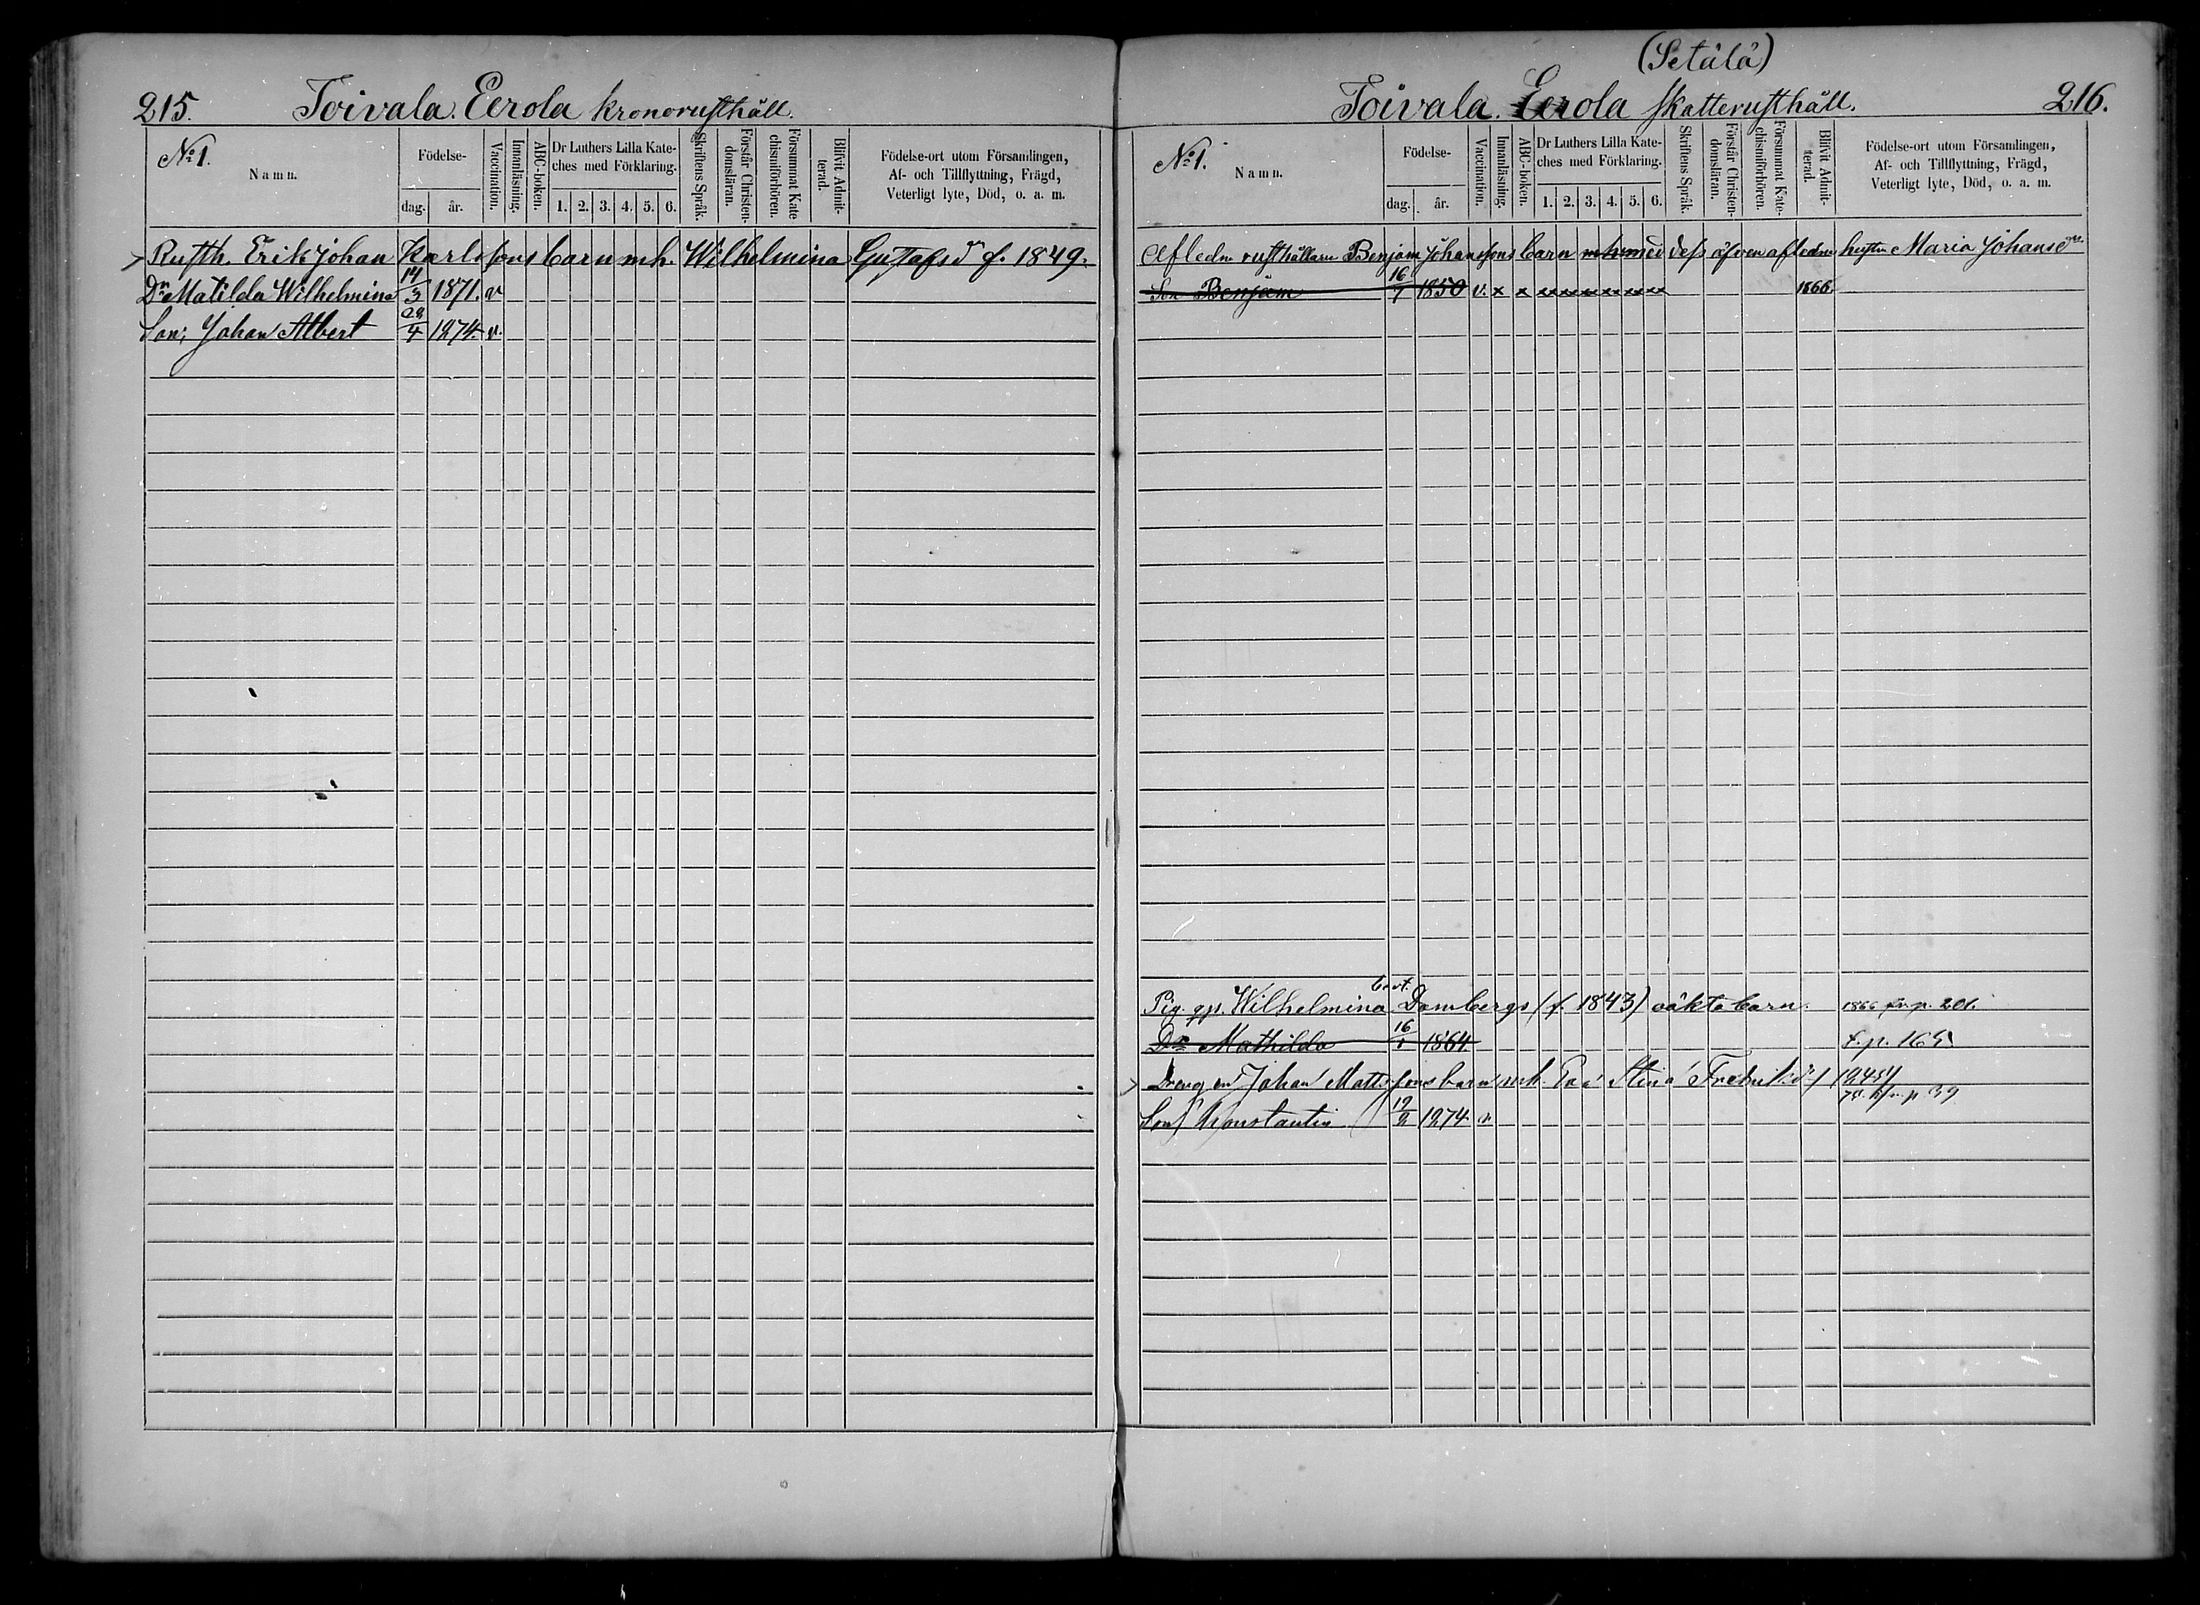 215. Toivala. Eerola kronorusthåll.
No 1.
Namn.
Födelse-
dag. år.
Vaccination.
Innanläsning.
ABC-boken.
Dr Luthers Lilla Kate-
ches med Förklaring.
1. 2. 3. 4. 5. 6.
Skriftens Språk.
Förstår Christen-
domsläran.
Försummat Kate
chismiförhören.
Blifvit Admit-
terad.
Födelse-ort utom Församlingen,
Af- och Tillflyttning, Frägd,
Veterligt lyte, Död, o. a. m.
Rusth. Erik Johan Karlssons barn m.h. Wilhelmina Gustafsdr f. 1849.
Dr Matilda Wilhelmina 14/3 1871. v
Son: Johan Albert 1874. v.
(Setälä)
Toivala. Eerola skatterusthåll. 216.
No 1.
Namn.
Födelse-
dag. år.
Vaccination.
Innanläsning.
ABC-boken.
Dr Luthers Lilla Kate-
ches med Förklaring.
1. 2. 3. 4. 5. 6.
Skriftens Språk.
Förstår Christen-
domsläran.
Försummat Kate-
chismiförhören.
Blifvit Admit-
terad.
Födelse-ort utom Församlingen,
Af- och Tillflyttning, Frägd,
Veterligt lyte, Död, o. a. m.
Afledne rusthållarn Benjam Johanssons barn med dess äfven afledne hustru Maria Johansdr
Son Benjam 16/7 1850 v. x x x x x x x x 1866.
Pig. Wilhelmina Dambergs (f. 1843) oäkta barn. 1866 fr. p. 201.
Dr Mathilda 16/1 1864 t. p. 165
Dreng Johan Mattssons barn m.h. Eva Stina Fredriksdr 1845
p 39
Son Konstantin 19/2 1874 v